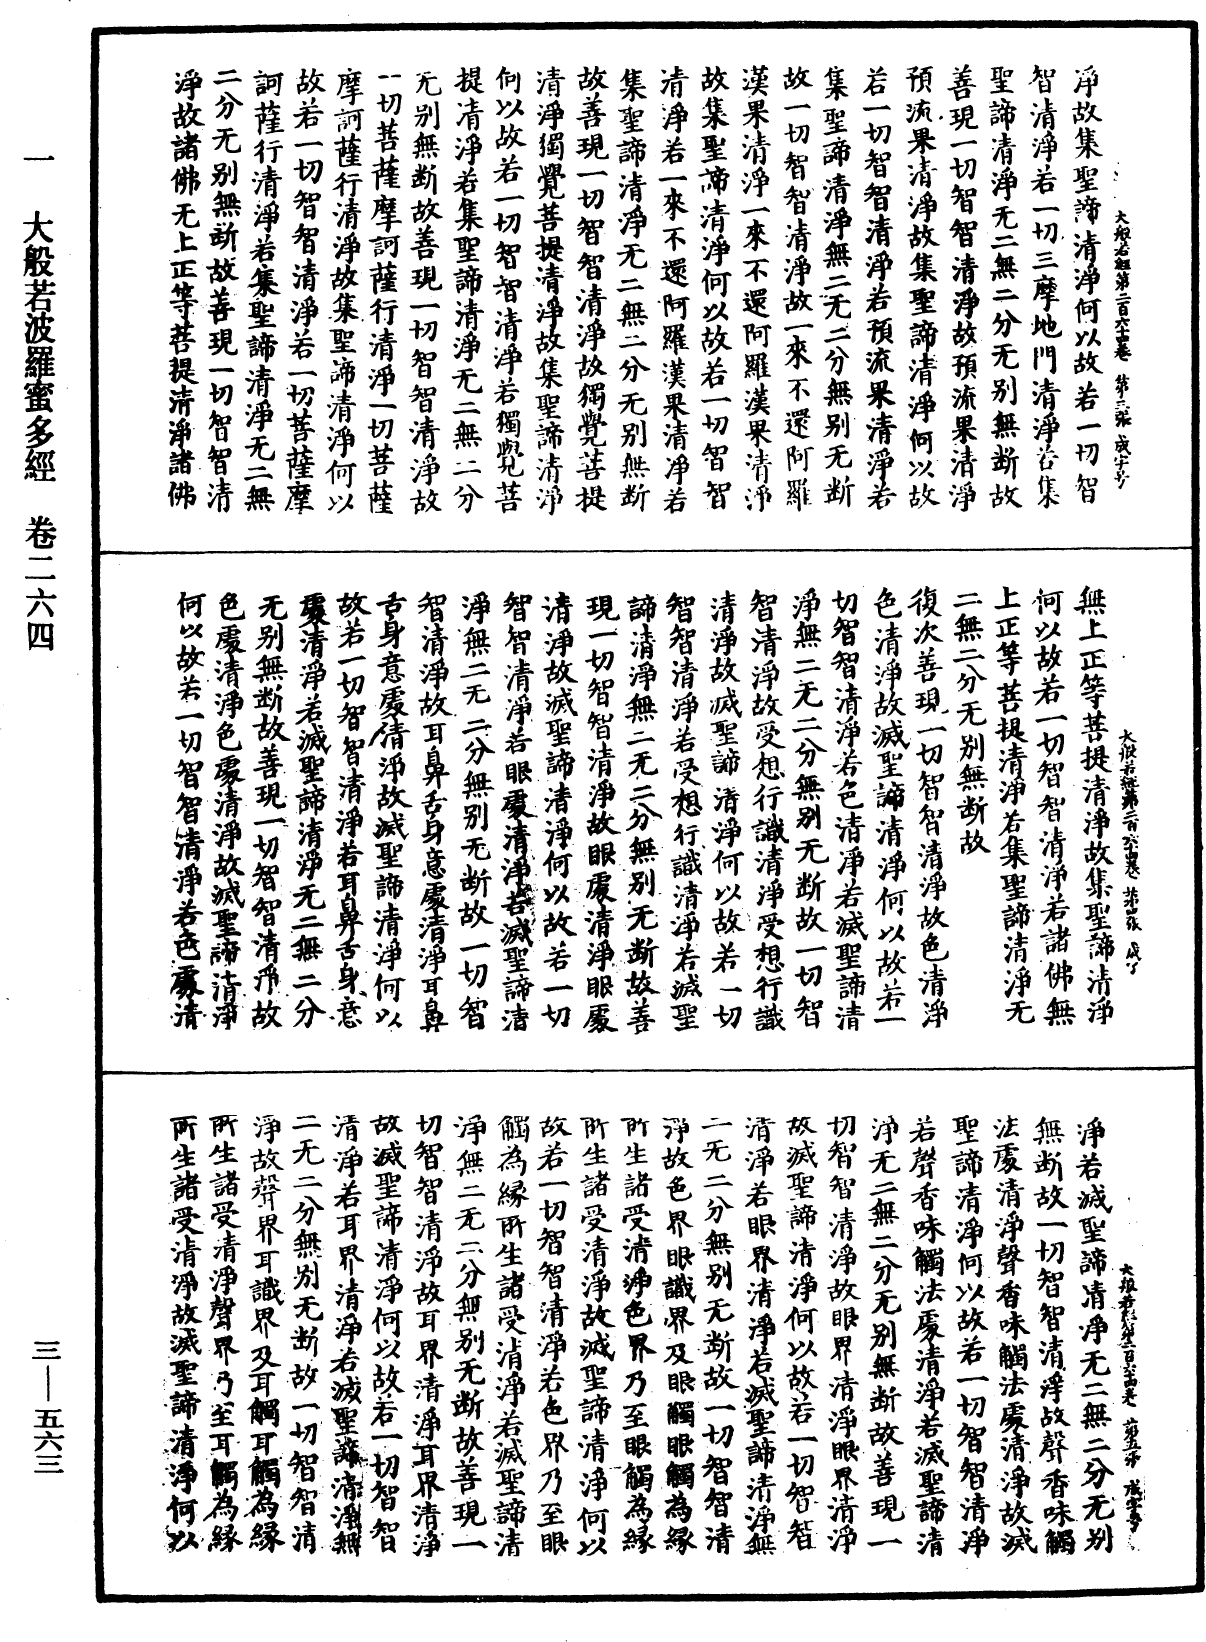 一 大般若波羅蜜多經 卷二六四
三—五六三
大般若經第二百六十四卷 第三張 咸字号
淨故集聖諦清淨何以故若一切智
智清淨若一切三摩地門清淨若集
聖諦清淨无二無二分无别無断故
善現一切智智清淨故預流果清淨
預流果清淨故集聖諦清淨何以故
若一切智智清淨若預流果清淨若
集聖諦清淨無二无二分無别无断
故一切智智清淨故一來不還阿羅
漢果清淨一來不還阿羅漢果清淨
故集聖諦清淨何以故若一切智智
清淨若一來不還阿羅漢果清淨若
集聖諦清淨无二無二分无别無断
故善現一切智智清淨故獨覺菩提
清淨獨覺菩提清淨故集聖諦清淨
何以故若一切智智清淨若獨覺菩
提清淨若集聖諦清淨无二無二分
无别無断故善現一切智智清淨故
一切菩薩摩訶薩行清淨一切菩薩
摩訶薩行清淨故集聖諦清淨何以
故若一切智智清淨若一切菩薩摩
訶薩行清淨若集聖諦清淨无二無
二分无别無断故善現一切智智清
淨故諸佛无上正等菩提清淨諸佛
大般若經第二百六十四卷 第四張 咸字
無上正等菩提清淨故集聖諦清淨
何以故若一切智智清淨若諸佛無
上正等菩提清淨若集聖諦清淨无
二無二分无别無断故
復次善現一切智智清淨故色清淨
色清淨故滅聖諦清淨何以故若一
切智智清淨若色清淨若滅聖諦清
淨無二无二分無别无断故一切智
智清淨故受想行識清淨受想行識
清淨故滅聖諦清淨何以故若一切
智智清淨若受想行識清淨若滅聖
諦清淨無二无二分無别无断故善
現一切智智清淨故眼處清淨眼處
清淨故滅聖諦清淨何以故若一切
智智清淨若眼處清淨若滅聖諦清
淨無二无二分無别无断故一切智
智清淨故耳鼻舌身意處清淨耳鼻
舌身意處清淨故滅聖諦清淨何以
故若一切智智清淨若耳鼻舌身意
處清淨若滅聖諦清淨无二無二分
无别無断故善現一切智智清淨故
色處清淨色處清淨故滅聖諦清淨
何以故若一切智智清淨若色處清
大般若經第二百六十四卷 第五張 咸字号
淨若滅聖諦清淨无二無二分无别
無断故一切智智清淨故聲香味觸
法處清淨聲香味觸法處清淨故滅
聖諦清淨何以故若一切智智清淨
若聲香味觸法處清淨若滅聖諦清
淨无二無二分无别無断故善現一
切智智清淨故眼界清淨眼界清淨
故滅聖諦清淨何以故若一切智智
清淨若眼界清淨若滅聖諦清淨無
二无二分無别无断故一切智智清
淨故色界眼識界及眼觸眼觸為緣
所生諸受清淨色界乃至眼觸為緣
所生諸受清淨故滅聖諦清淨何以
故若一切智智清淨若色界乃至眼
觸為緣所生諸受清淨若滅聖諦清
淨無二无二分無别无断故善現一
切智智清淨故耳界清淨耳界清淨
故滅聖諦清淨何以故若一切智智
清淨若耳界清淨若滅聖諦清淨無
二无二分無别无断故一切智智清
淨故聲界耳識界及耳觸耳觸為緣
所生諸受清淨聲界乃至耳觸為緣
所生諸受清淨故滅聖諦清淨何以